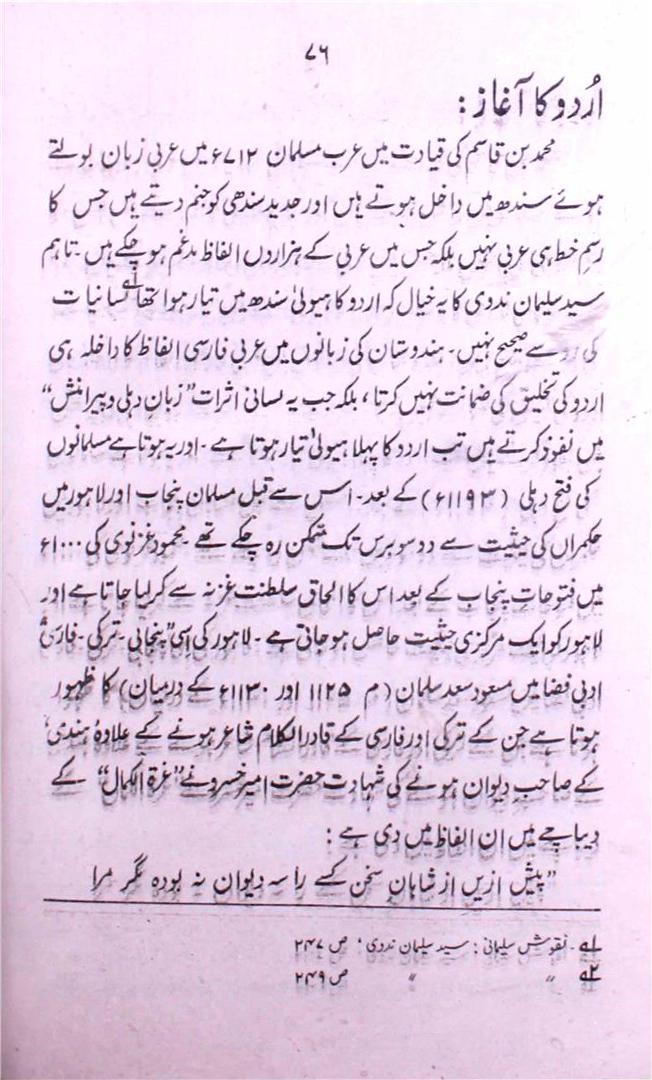 ۷۶
اُردو کا آغاز :
محمد بن قاسم کی قیادت میں عرب مسلمان ۷۱۲ء میں عربی زبان بولتے
ہوئے سندھ میں داخل ہوتے ہیں اور جدید سندھی کو جنم دیتے ہیں جس کا
رسم خط ہی عربی نہیں بلکہ جس میں عربی کے ہزاروں الفاظ مدغم ہو چکے ہیں۔ تاہم
سید سلیمان ندوی کا یہ خیال کہ اردو کا ہیولیٰ سندھ میں تیار ہوا تھا؂۱ لسانیات
کی رو سے صحیح نہیں۔ ہندوستان کی زبانوں میں عربی فارسی الفاظ کا داخلہ ہی
اردو کی تخلیق کی ضمانت نہیں کرتا، بلکہ جب یہ لسانی اثرات "زبانِ دہلی و پیرامنش"
میں نفوذ کرتے ہیں تب اردو کا پہلا ہیولیٰ تیار ہوتا ہے۔ اور یہ ہوتا ہے مسلمانوں
کی فتح دہلی (۱۱۹۳ء) کے بعد۔ اس سے قبل مسلمان پنجاب اور لاہور میں
حکمراں کی حیثیت سے دو سو برس تک متمکن رہ چکے تھے۔ محمود غزنوی کی ۱۰۰۰ء
میں فتوحاتِ پنجاب کے بعد اس کا الحاق سلطنت غزنہ سے کر لیا جاتا ہے اور
لاہور کو ایک مرکزی حیثیت حاصل ہو جاتی ہے۔ لاہور کی اسی "پنجابی۔ ترکی۔ فارسی"
ادبی فضا میں مسعود سعد سلمان (م ۱۱۲۵ اور ۱۱۳۰ء کے درمیان) کا ظہور
ہوتا ہے جن کے ترکی اور فارسی کے قادر الکلام شاعر ہونے کے علاوہ 'ہندی'
کے صاحبِ دیوان ہونے کی شہادت حضرت امیر خسرو نے "غرۃ الکمال" کے
دیباچے میں ان الفاظ میں دی ہے :
"پیش ازیں از شاہانِ سخن کسے را سہ دیوان نہ بودہ مگر مرا
؂۱۔ نقوش سلیمانی : سید سلیمان ندوی؛ ص ۲۴۷
؂۲ " " ص ۲۴۹